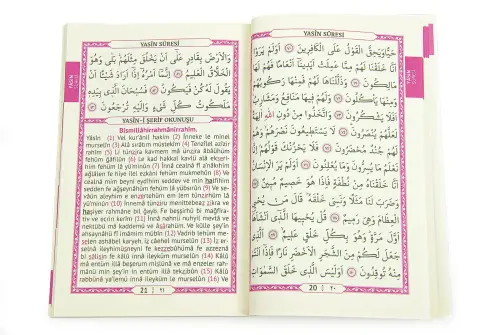 YASİN SÛRESİ
حَيًّا وَيَحِقَّ الْقَوْلُ عَلَى الْكَافِرِينَ اَوَلَمْ يَرَوْا
اَنَّا خَلَقْنَا لَهُمْ مِمَّا عَمِلَتْ اَيْدِينَا اَنْعَامًا فَهُمْ لَهَا
مَالِكُونَ وَذَلَّلْنَاهَا لَهُمْ فَمِنْهَا رَكُوبُهُمْ
وَمِنْهَا يَأْكُلُونَ وَلَهُمْ فِيهَا مَنَافِعُ وَمَشَارِبُ
اَفَلَا يَشْكُرُونَ وَاتَّخَذُوا مِنْ دُونِ اللهِ اٰلِهَةً
لَعَلَّهُمْ يُنْصَرُونَ لَا يَسْتَطِيعُونَ نَصْرَهُمْ وَهُمْ
لَهُمْ جُنْدٌ مُحْضَرُونَ فَلَا يَحْزُنْكَ قَوْلُهُمْ اِنَّا
نَعْلَمُ مَا يُسِرُّونَ وَمَا يُعْلِنُونَ اَوَلَمْ يَرَ الْاِنْسَانُ
اَنَّا خَلَقْنَاهُ مِنْ نُطْفَةٍ فَاِذَا هُوَ خَصِيمٌ مُبِينٌ
وَضَرَبَ لَنَا مَثَلًا وَنَسِيَ خَلْقَهُ قَالَ مَنْ يُحْيِي
الْعِظَامَ وَهِيَ رَمِيمٌ قُلْ يُحْيِيهَا الَّذِي اَنْشَاَهَا
اَوَّلَ مَرَّةٍ وَهُوَ بِكُلِّ خَلْقٍ عَلِيمٌ الَّذِي جَعَلَ
لَكُمْ مِنَ الشَّجَرِ الْاَخْضَرِ نَارًا فَاِذَا اَنْتُمْ
مِنْهُ تُوقِدُونَ اَوَلَيْسَ الَّذِي خَلَقَ السَّمٰوَاتِ
20 ٢٠
YASİN SÛRESİ
YASİN SÛRESİ
وَالْاَرْضَ بِقَادِرٍ عَلٰٓى اَنْ يَخْلُقَ مِثْلَهُمْ بَلٰى وَهُوَ
الْخَلَّاقُ الْعَلِيمُ اِنَّمَٓا اَمْرُهُٓ اِذَٓا اَرَادَ شَيْئًا اَنْ
يَقُولَ لَهُ كُنْ فَيَكُونُ فَسُبْحَانَ الَّذِي بِيَدِهِ
مَلَكُوتُ كُلِّ شَيْءٍ وَاِلَيْهِ تُرْجَعُونَ
YASİN-İ ŞERİF OKUNUŞU
Bismillâhirrahmânirrahîm.
Yâsîn (1) Vel kur'ânil hakîm (2) İnneke le minel
murselîn (3) Alâ sırâtın müstekîm (4) Tenzîlel azîzir
rahîm (5) Li tünzira kavmen mâ ünzira âbâuhum
fehüm ğâfilûn (6) Le kad hakkal kavlü alâ ekseri-
him fehüm lâ yü'minûn (7) İnnâ cealnâ fî a'nâkıhim
ağlâlen fe hiye ilel ezkâni fehüm mukmehûn (8) Ve
cealnâ min beyni eydîhim sedden ve min halfihim
sedden fe ağşeynâhüm fehüm lâ yübsırûn (9) Ve se-
vâün aleyhim e enzertehüm em lem tünzirhüm lâ
yü'minûn (10) İnnemâ tünziru menittebeaz zikra ve
haşiyer rahmâne bil ğayb. Fe beşşirhü bi mağfira-
tiv ve ecrin kerîm (11) İnnâ nahnü nuhyil mevtâ ve
nektübü mâ kaddemû ve âsârahüm. Ve külle şey'in
ahsaynâhü fî imâmin mübîn (12) Vadrib lehüm me-
selen ashâbel karyeh. İz câehel murselûn (13) İz er-
selnâ ileyhimüsneyni fe kezzebûhümâ fe azzeznâ
bi sâlisin fe kâlû innâ ileyküm murselûn (14) Kâlû
mâ entüm illâ beşerun mislünâ ve mâ enzeler rah-
mânü min şey'in in entüm illâ tekzibûn (15) Kâlû
rabbünâ ya'lemü innâ ileyküm le murselûn (16) Ve
21 ٢١
YASİN SÛRESİ